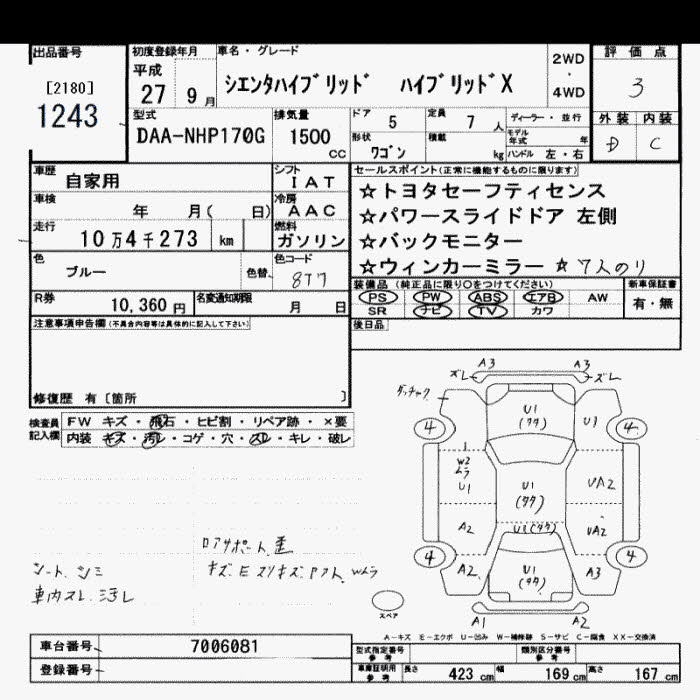 出品番号
[2180]
1243
初度登録年月
平成
27 9月
車名・グレード
シエンタハイブリッド ハイブリッドX
2WD
・
4WD
評価点
3
外装 内装
D C
型式
DAA-NHP170G
排気量
1500
CC
ドア 5
定員 7 人
形状
ワゴン
積載
kg
ディーラー・並行
モデル年式 年
ハンドル 左・右
車歴
自家用
シフト
IAT
車検
年 月( 日)
冷房
AAC
走行
10万4千273 km
燃料
ガソリン
色
ブルー
色替
色コード
8T7
R券
10,360円
名変通知期限
月 日
セールスポイント(正常に機能するものに限ります)
☆トヨタセーフティセンス
☆パワースライドドア 左側
☆バックモニター
☆ウィンカーミラー ☆7人のり
装備品 (純正品に限り○をつけてください)
PS PW ABS エアB AW
SR ナビ TV カワ
新車保証書
有・無
後日品
注意事項申告欄(不具合内容等は具体的に記入して下さい)
修復歴 有〔箇所 〕
検査員記入欄
FW キズ・飛石・ヒビ割・リペア跡・×要
内装 キズ・汚レ・コゲ・穴・スレ・キレ・破レ
A3 A3
ズレ ズレ
U1
(タタ)
U1
4 4
W2
ムラ
U1
U1
(タタ)
UA2
A2
UA2
4 4
A2
U1
(タタ)
A3
A1 A2
スペア
ロアサポート歪
シート、シミ
車内スレ、汚レ
A―キズ E―エクボ U―凹み W―補修跡 S―サビ C―腐食 XX―交換済
車台番号
7006081
登録番号
型式指定番号
参考
類別区分番号
参考
車庫証明用
参考
長さ 423 cm 幅 169 cm 高さ 167 cm